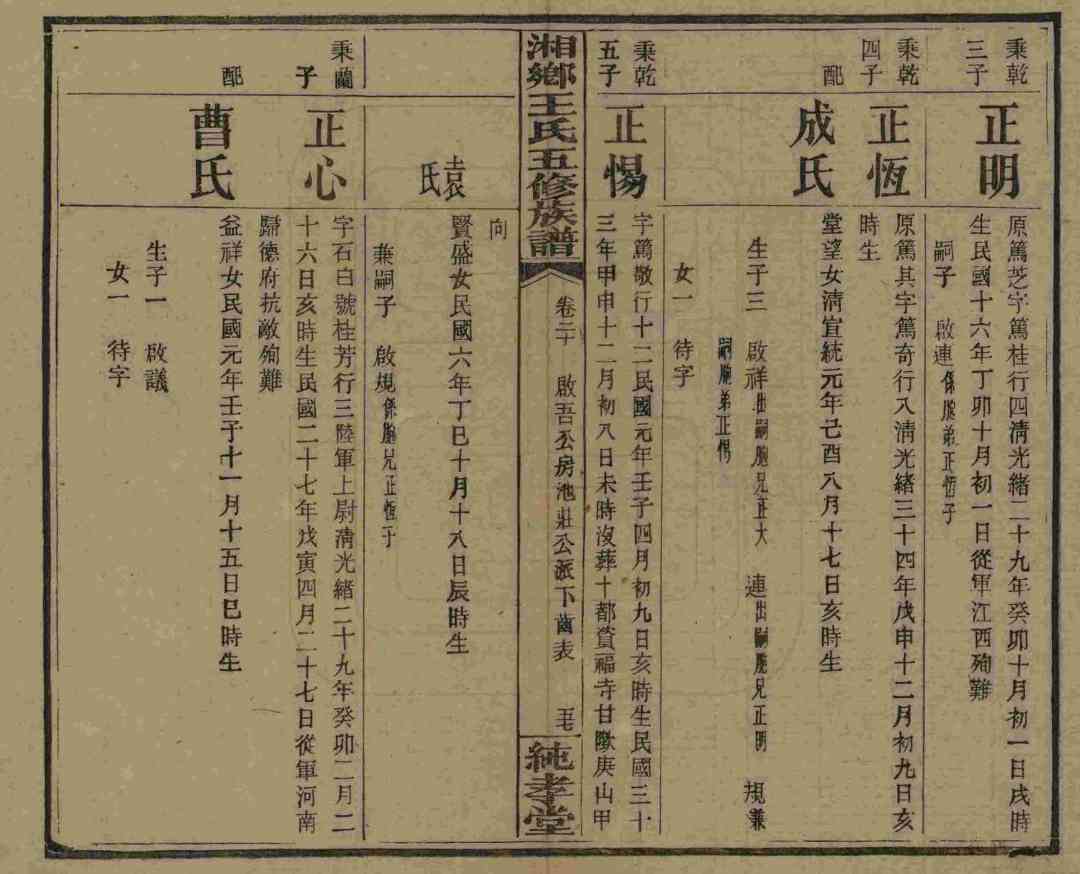 秉乾三子
正明
原篤芝字篤桂行四清光緒二十九年癸卯十月初一日戌時
生民國十六年丁卯十月初一日從軍江西殉難
嗣子 啟連係胞弟正恆子
秉乾四子
正恆
原篤其字篤奇行八清光緒三十四年戊申十二月初九日亥
時生
配
成氏
堂望女清宣統元年己酉八月十七日亥時生
生子三 啟祥出嗣胞兄正大 連出嗣胞兄正明 規兼
嗣胞弟正惕
女一 待字
秉乾五子
正惕
字篤敬行十二民國元年壬子四月初九日亥時生民國三十
三年甲申十二月初八日未時沒葬十都資福寺甘墩庚山甲
湘鄉王氏五修族譜
卷二十 啟吾公房池莊公派下齒表
純孝堂
向
袁氏
賢盛女民國六年丁巳十月十八日辰時生
兼嗣子 啟規係胞兄正恆子
秉蘭子
正心
字石白號桂芳行三陸軍上尉清光緒二十九年癸卯二月二
十六日亥時生民國二十七年戊寅四月二十七日從軍河南
歸德府抗敵殉難
配
曹氏
益祥女民國元年壬子十一月十五日巳時生
生子一 啟議
女一 待字